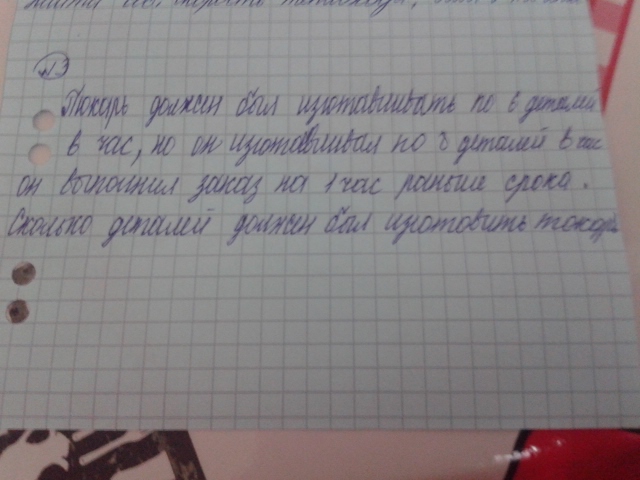 найти скорость теплохода, если
№3
Токарь должен был изготавливать по 6 деталей
в час, но он изготавливал по 8 деталей в час
он выполнил заказ на 1 час раньше срока.
Сколько деталей должен был изготовить токарь